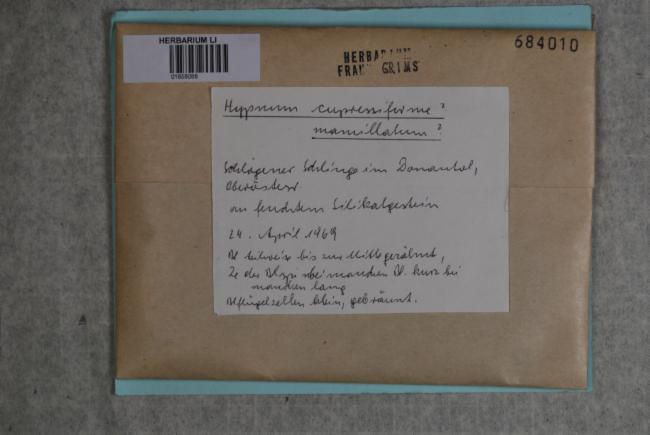 HERBARIUM LI
684010
HERBARIUM
FRANZ GRIMS
Hypnum cupressiforme ?
mamillatum ?
Schlögener Schlinge im Donautal,
Oberösterr.
an feuchtem Silikatgestein
24. April 1969
Bl teilweise bis zur Mitte gezähnt,
Ze der Blspi bei manchen Bl. kurz bei
manchen lang
Blflügelzellen klein, gebräunt.